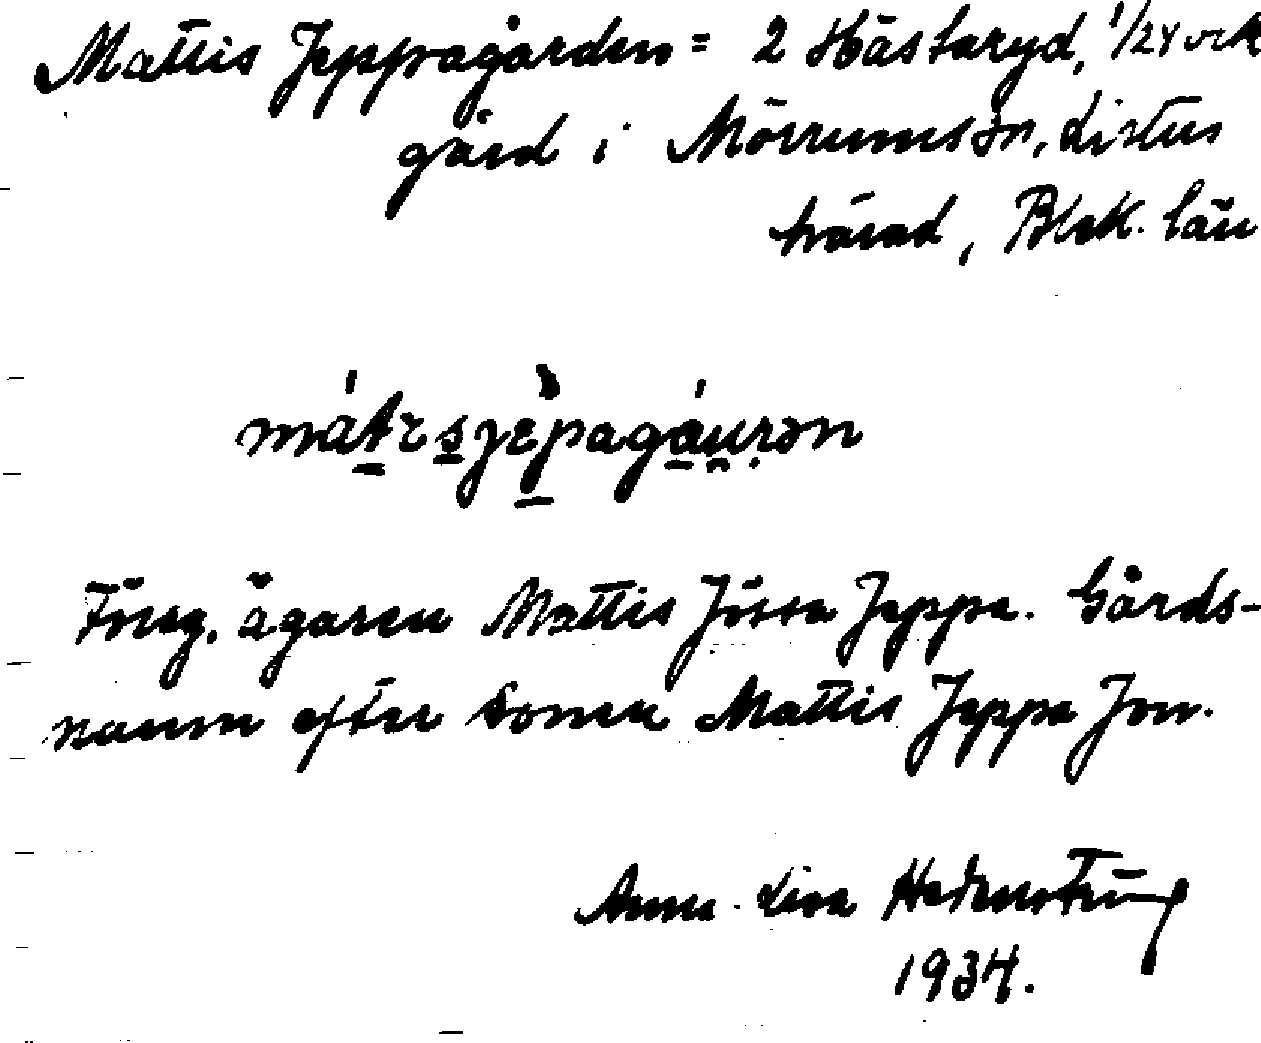 Mattis Jeppagården = 2 Hästaryd, 1/24 ock
gård i Mörrums sn, Listers
härad, Blek. län
mátɩsjèpagáu̯ṛən
Förreg. ägaren Mattis Jeppa. Gårds-
namn efter sonen Mattis Jeppa Jon.
Anna-Lisa
1934.